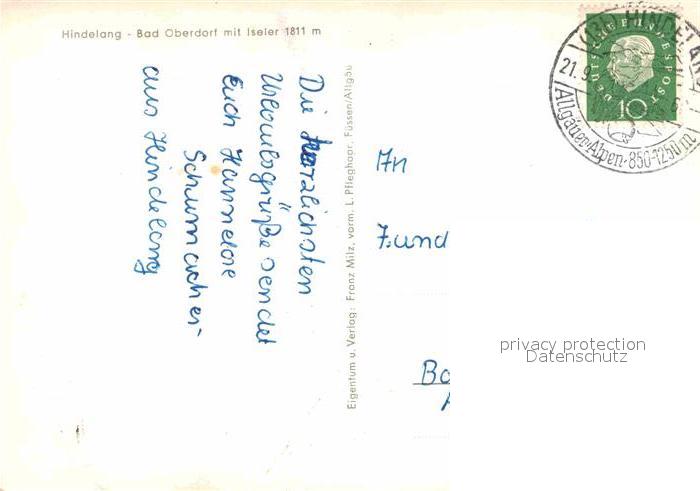 Hindelang - Bad Oberdorf mit Iseler 1811 m
Die herzlichsten
Urlaubsgrüße sendet
Euch Hannelore
Schumacher
aus Hindelang
Eigentum u. Verlag: Franz Milz, vorm. L. Pfleghapr, Füssen/Allgäu
DEUTSCHE BUNDESPOST
10
HINDELANG
21.9.
Allgäuer-Alpen·850-1250m
An
F.und
Ba
privacy protection
Datenschutz